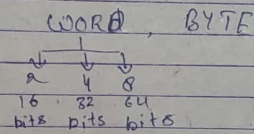 WORD, BYTE
2 4 8
16 32 64
bits bits bits